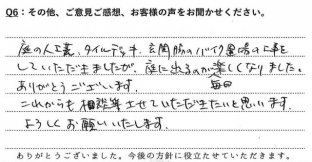 Q6：その他、ご意見ご感想、お客様の声をお聞かせください。
庭の人工芝、タイルデッキ、玄関脇のバイク置場の工事を
していただきましたが、庭に出るのが毎日楽しくなりました。
ありがとうございます。
これからも相談等させていただきたいと思います。
よろしくお願いいたします。
ありがとうございました。今後の方針に役立たせていただきます。